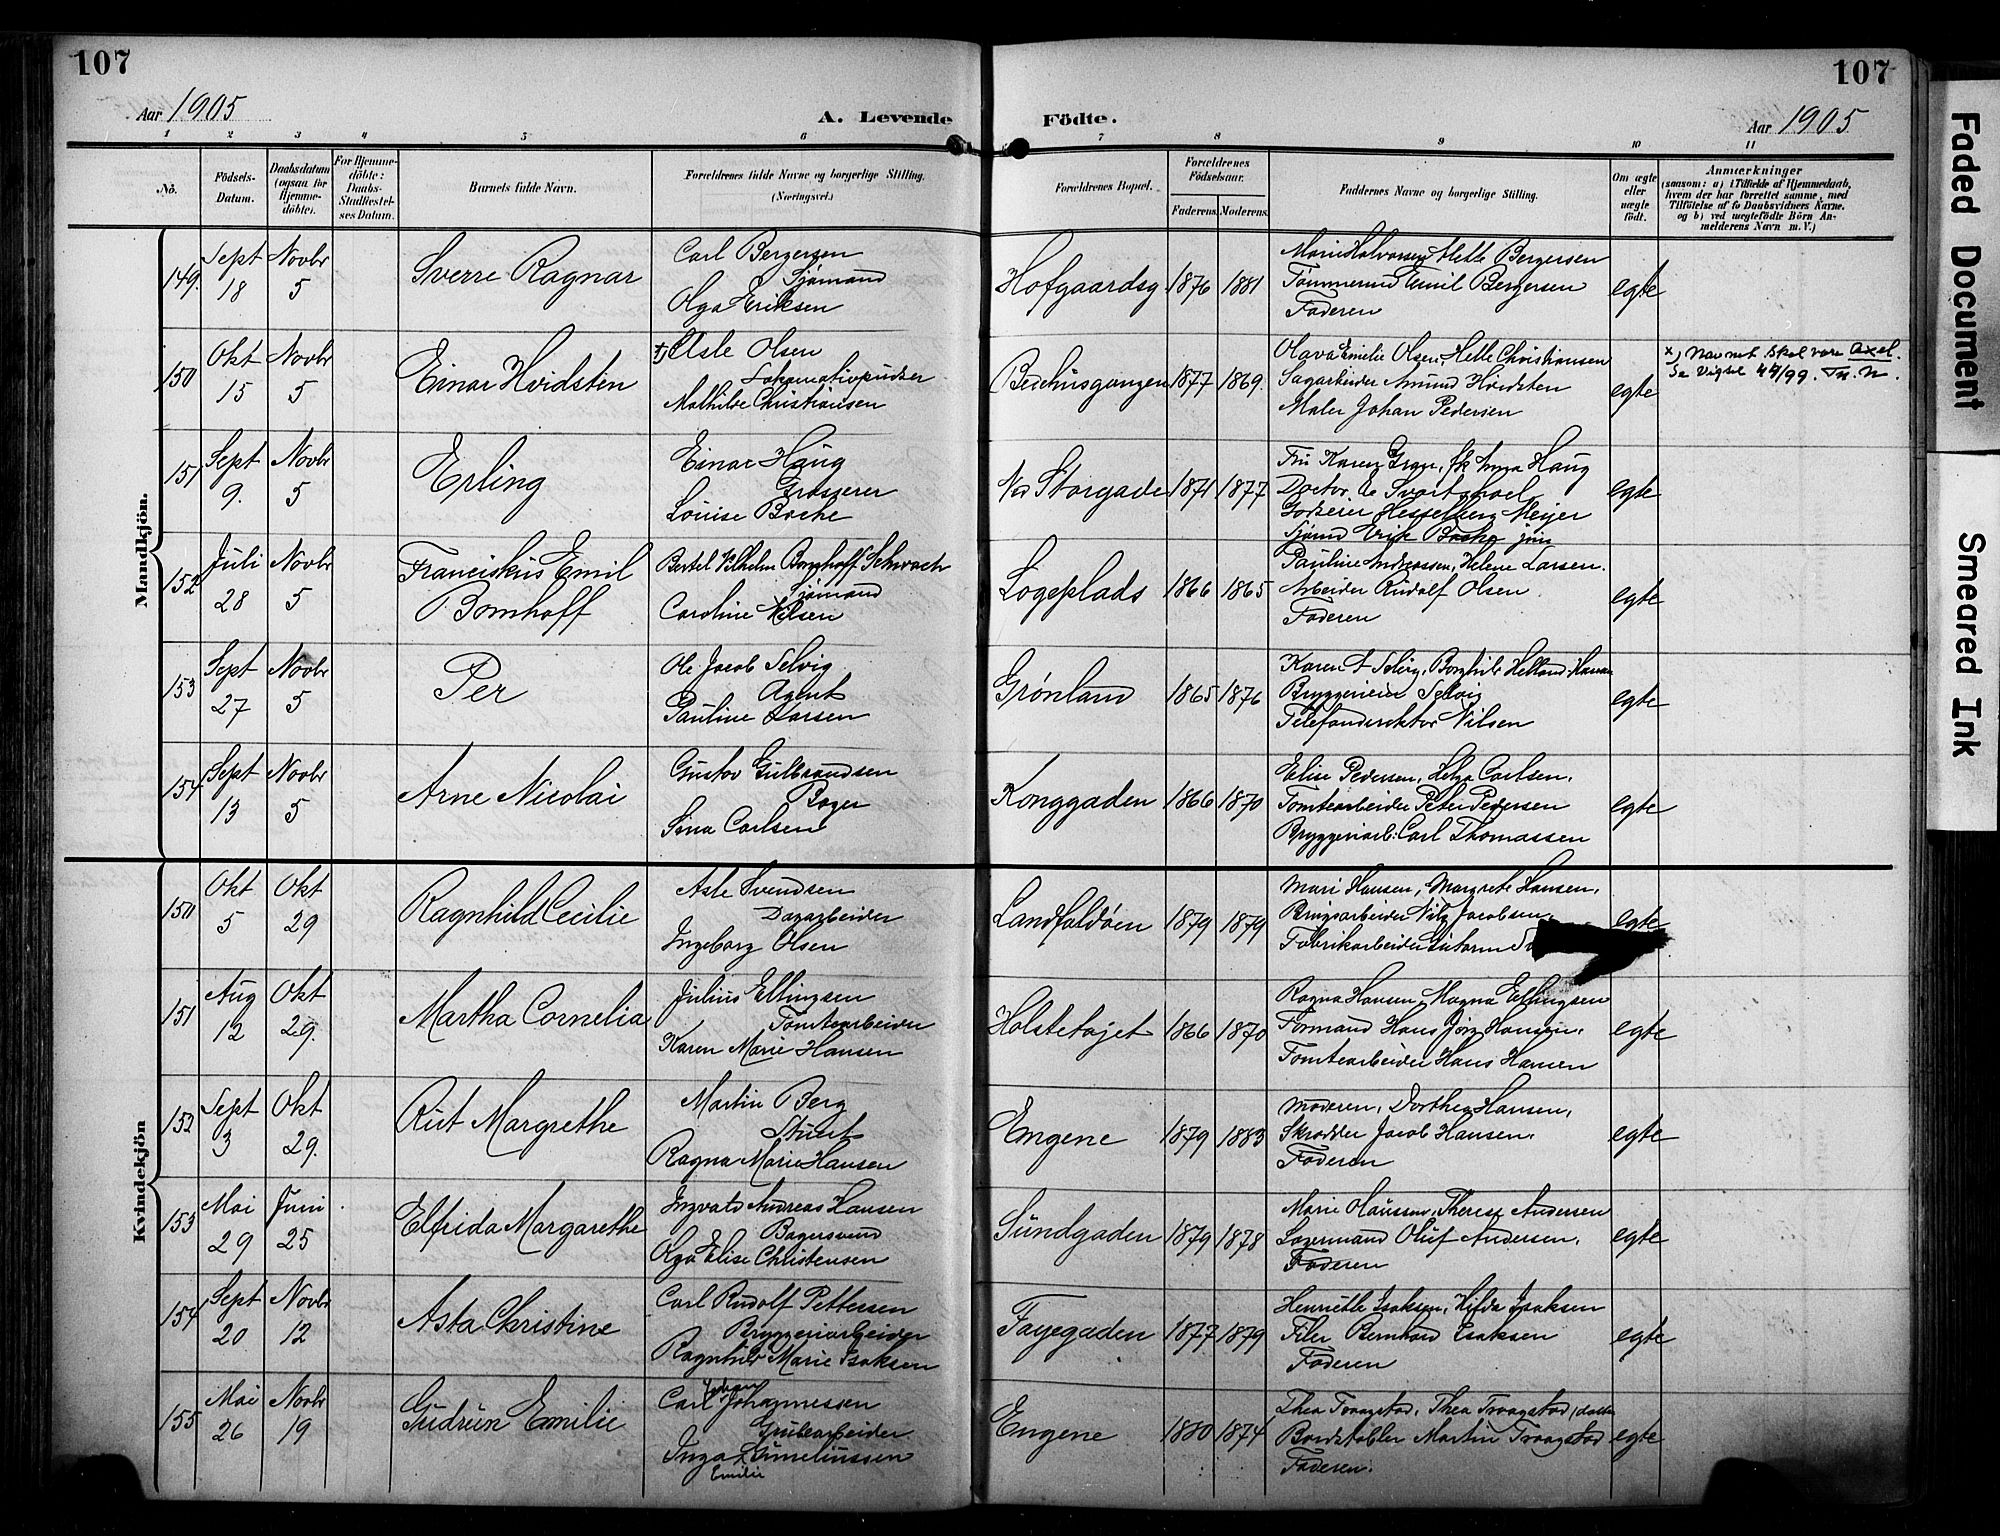 107
107
Aar 1905
A. Levende Födte.
Aar 1905
1 2 3 4 5 6 7 8 9 10 11
No.
Födsels-Datum.
Daabsdatum (ogsaa for Hjemme-döbte).
For Hjemme-döbte: Daabs-Stadfæstel-ses Datum.
Barnets fulde Navn.
Forældrenes fulde Navne og borgerlige Stilling.
(Næringsvei.)
Forældrenes Bopæl.
Forældrenes Födselsaar.
Faderens. Moderens.
Faddernes Navne og borgerlige Stilling.
Om ægte eller uægte født.
Anmærkninger
(saasom: a) i Tilfælde af Hjemmedaab,
hvem der har forrettet samme, med
Tilföielse af to Daabsvidners Navne.
og b) ved uægtefödte Börn An-
melderens Navn m. V.)
Mandkjön.
149. Sept 18 Novbr 5 Sverre Ragnar
Carl Bergersen
Sjømand
Olga Eriksen
Hofgaardsg 1876 1881
Marie Halvorsen, Mette Bergersen
Tømmermd Emil Bergersen
Faderen
egte
150 Okt 15 Novbr 5 Einar Hvidstin
x) Asle Olsen
Lokomotivpudser
Mathilde Christiansen
Bedehusgangen 1877 1869.
Olava Emilie Olsen, Helle Christiansen
Sagarbeider Amund Hvidsten
Maler Johan Pedersen
egte
x) Navnet skal være Axel.
Se Vigsel 47/99.
151 Sept 9. Novbr 5 Erling
Einar Haug
Grosserer
Louise Boche
Storgade 1871 1877
Fru Karen Gran, frk Anna Haug
Doctor E Svartshoel
Godseier Hesselberg Meijer
Sjømd Erik Boche jun
egte
152 Juli 28 Novbr 5 Franciskus Emil
Bomhoff
Bertel Vilhelm Bomhoff Schwach
Sjømand
Caroline Nilsen
Logeplads 1866 1865
Pauline Andreassen, Helene Larsen.
Arbeider Rudolf Olsen
Faderen
egte
153 Sept 27 Novbr 5 Per
Ole Jacob Selvig
Agent
Pauline Larsen
Grønland 1865 1876
Karen A Selvig, Borghild Helland Hansen
Bryggerieier Selvig
Telefondirektør Nilsen
egte
154 Sept 13 Novbr 5 Arne Nicolai
Gustav Gulbrandsen
Bager
Sina Carlsen
Konggaden 1866 1870
Elise Pedersen, Helga Carlsen.
Tomtearbeider Peter Pedersen
Bryggeriarb: Carl Thomassen
egte
Kvindekjön
150 Okt 5 Okt 29 Ragnhild Cecilie
Asle Svendsen
Dagarbeider
Ingeborg Olsen
Landfaldøen 1879 1879
Mari Hansen, Margrete Hansen.
Brugsarbeider Nils Jacobsen.
Fabrikarbeider
egte
151 Aug 12 Okt 29. Martha Cornelia
Julius Ellingsen
Tomtearbeider
Karen Marie Hansen
Holstetøjet 1866 1870
Ragna Hansen, Magna Ellingsen
Formand Hans Jørg Hansen.
Tomtearbeider Hans Hansen
egte
152 Sept 3 Okt 29. Rut Margrethe
Martin Berg
Stuert
Ragna Marie Hansen
Engene 1879 1883
Moderen, Dorthea Hansen,
Skrædder Jacob Hansen.
Faderen
egte
153 Mai 29 Juni 25 Elfrida Margarethe
Ingvald Andreas Hansen
Bagersvend
Olga Elise Christensen
Sundgaden 1879 1878
Marie Hansen, Therese Andersen
Lagermand Oluf Andersen.
Faderen
egte
154 Sept 20 Novbr 12 Asta Christine
Carl Rudolf Pettersen
Bryggeriarbeider
Ragnhild Marie Isaksen
Fayegaden 1877 1879
Henriette Isaksen, Hilda Isaksen
Filer Bernhard Isaksen
Faderen
egte
155 Mai 26 Novbr 19 Gudrun Emilie
Carl Johan Johannessen
Grubearbeider
Inga Emilie Gumeliussen
Engene 1880 1874
Thea Traagstad, Thea Traagstad (datter
Bordstabler Martin Traagstad
Faderen.
egte
Faded Document
Smeared Ink